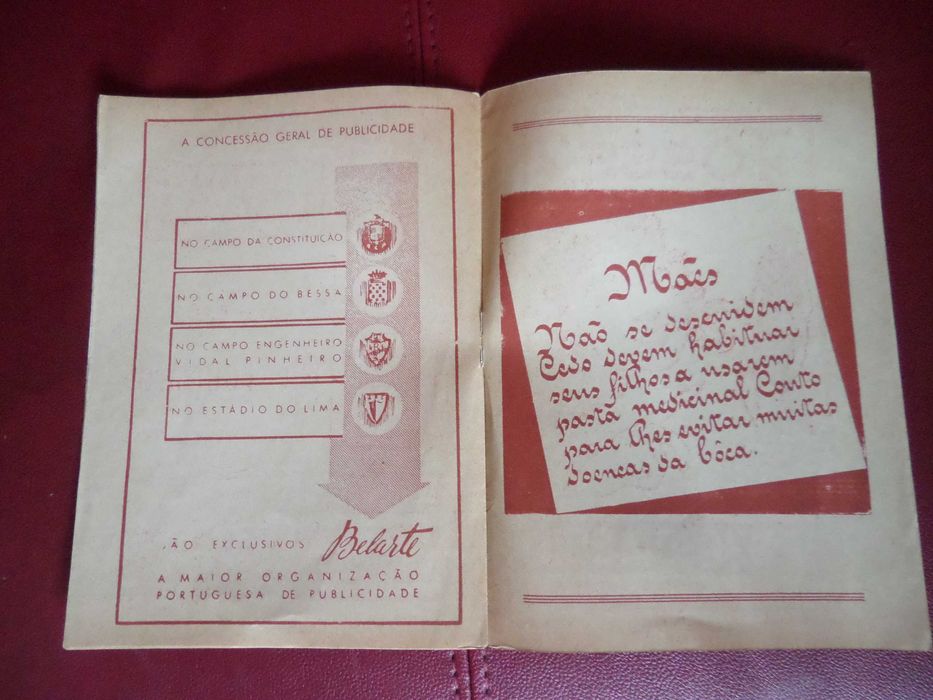 A CONCESSÃO GERAL DE PUBLICIDADE
NO CAMPO DA CONSTITUIÇÃO
NO CAMPO DO BESSA
NO CAMPO ENGENHEIRO
VIDAL PINHEIRO
NO ESTÁDIO DO LIMA
ÃO EXCLUSIVOS Belarte
A MAIOR ORGANIZAÇÃO
PORTUGUESA DE PUBLICIDADE
Mães
Não se descuidem
Cedo devem habituar
seus filhos a usarem
pasta medicinal Couto
para lhes evitar muitas
doencas da bôca.